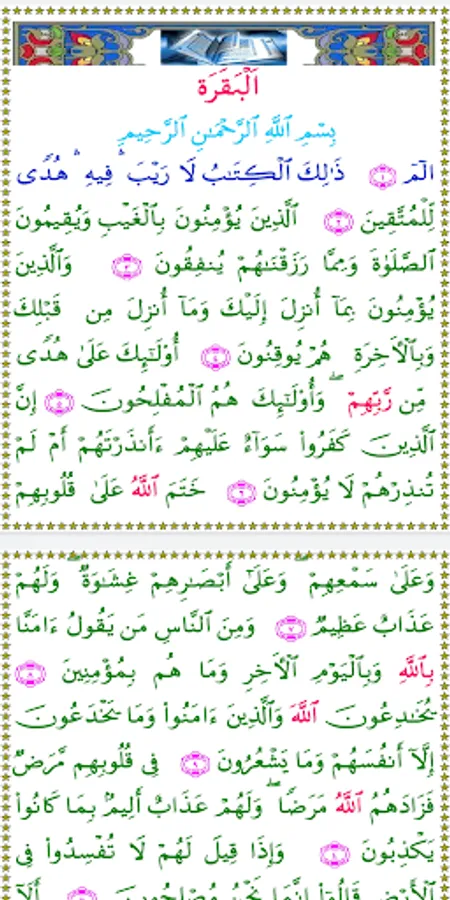 اَلْبَقَرَة
بِسْمِ اللَّهِ الرَّحْمَٰنِ الرَّحِيمِ
الٓمٓ ﴿١﴾ ذَٰلِكَ الْكِتَٰبُ لَا رَيْبَ ۛ فِيهِ ۛ هُدًى
لِّلْمُتَّقِينَ ﴿٢﴾ الَّذِينَ يُؤْمِنُونَ بِالْغَيْبِ وَيُقِيمُونَ
الصَّلَوٰةَ وَمِمَّا رَزَقْنَٰهُمْ يُنفِقُونَ ﴿٣﴾ وَالَّذِينَ
يُؤْمِنُونَ بِمَآ أُنزِلَ إِلَيْكَ وَمَآ أُنزِلَ مِن قَبْلِكَ
وَبِالْأَخِرَةِ هُمْ يُوقِنُونَ ﴿٤﴾ أُوْلَٰٓئِكَ عَلَىٰ هُدًى
مِّن رَّبِّهِمْ ۖ وَأُوْلَٰٓئِكَ هُمُ الْمُفْلِحُونَ ﴿٥﴾ إِنَّ
الَّذِينَ كَفَرُوا۟ سَوَآءٌ عَلَيْهِمْ ءَأَنذَرْتَهُمْ أَمْ لَمْ
تُنذِرْهُمْ لَا يُؤْمِنُونَ ﴿٦﴾ خَتَمَ اللَّهُ عَلَىٰ قُلُوبِهِمْ
وَعَلَىٰ سَمْعِهِمْ ۖ وَعَلَىٰٓ أَبْصَٰرِهِمْ غِشَٰوَةٌ ۖ وَلَهُمْ
عَذَابٌ عَظِيمٌ ﴿٧﴾ وَمِنَ النَّاسِ مَن يَقُولُ ءَامَنَّا
بِاللَّهِ وَبِالْيَوْمِ الْأَخِرِ وَمَا هُم بِمُؤْمِنِينَ ﴿٨﴾
يُخَٰدِعُونَ اللَّهَ وَالَّذِينَ ءَامَنُوا۟ وَمَا يَخْدَعُونَ
إِلَّآ أَنفُسَهُمْ وَمَا يَشْعُرُونَ ﴿٩﴾ فِى قُلُوبِهِم مَّرَضٌ
فَزَادَهُمُ اللَّهُ مَرَضًا ۖ وَلَهُمْ عَذَابٌ أَلِيمٌۢ بِمَا كَانُوا۟
يَكْذِبُونَ ﴿١٠﴾ وَإِذَا قِيلَ لَهُمْ لَا تُفْسِدُوا۟ فِى
الْأَرْضِ قَالُوٓا۟ إِنَّمَا نَحْنُ مُصْلِحُونَ ﴿١١﴾ أَلَآ